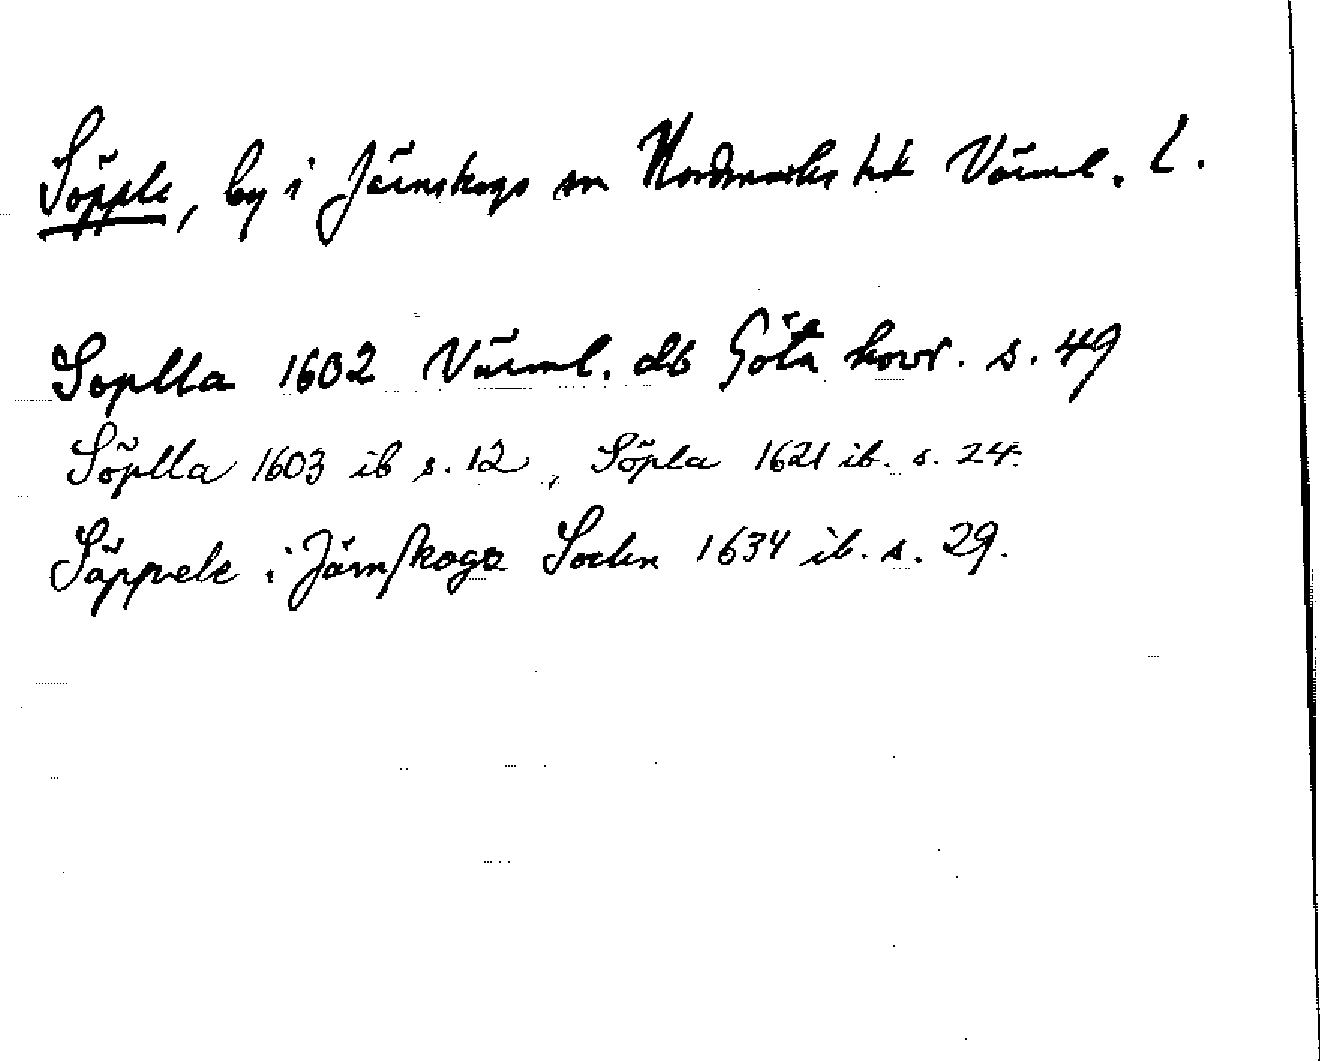 Söpple, by i Järnskogs sn Nordmarks hd Värml. L.
Soplla 1602 Värml. db Göta hovr. s. 49
Söplla 1603 ib s. 12, Söpla 1621 ib. s. 24.
Säppele i Järnskoga Sochn 1634 ib. s. 29.